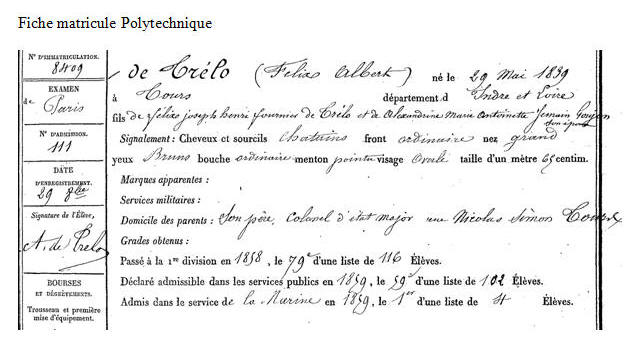 Fiche matricule Polytechnique
N° D'IMMATRICULATION.
8409
EXAMEN
de Paris
N° D'ADMISSION.
111
DATE
D'ENREGISTREMENT.
29 8bre
Signature de l'Élève,
A. de Trélo
BOURSES
ET DÉGRÈVEMENTS.
Trousseau et première
mise d'équipement.
de Trélo (Félix Albert) né le 29 Mai 1839
à Tours département d Indre et Loire
fils de Félix Joseph Henri Fournier de Trélo et de Alexandrine Marie Antoinette son épouse
Signalement : Cheveux et sourcils châtains front ordinaire nez grand
yeux Bruns bouche ordinaire menton pointu visage Ovale taille d'un mètre 65 centim.
Marques apparentes :
Services militaires :
Domicile des parents : Son père, Colonel d'état major rue Nicolas Simon Tours
Grades obtenus :
Passé à la 1re division en 1858, le 79e d'une liste de 116 Élèves.
Déclaré admissible dans les services publics en 1859, le 59e d'une liste de 102 Élèves.
Admis dans le service de la Marine en 1859, le 1er d'une liste de 4 Élèves.